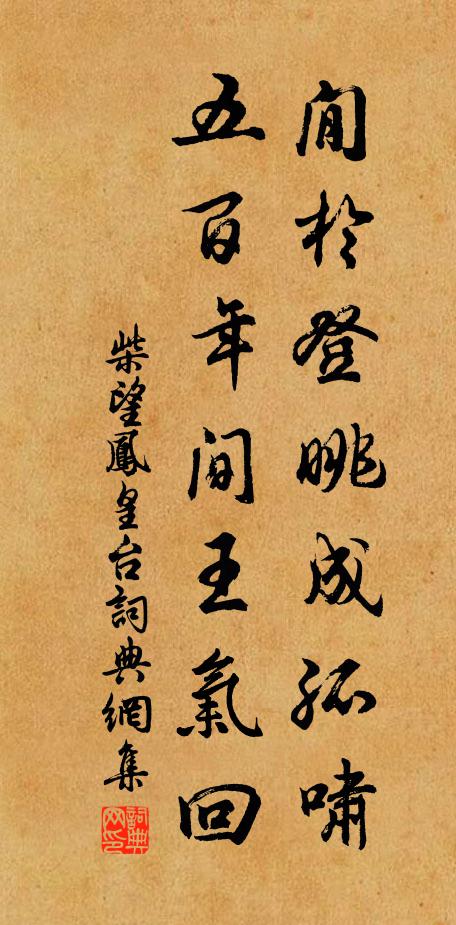 閒於登眺成孤嘯
五百年間王氣回
柴望鳳皇台詞典網集
詞典网印